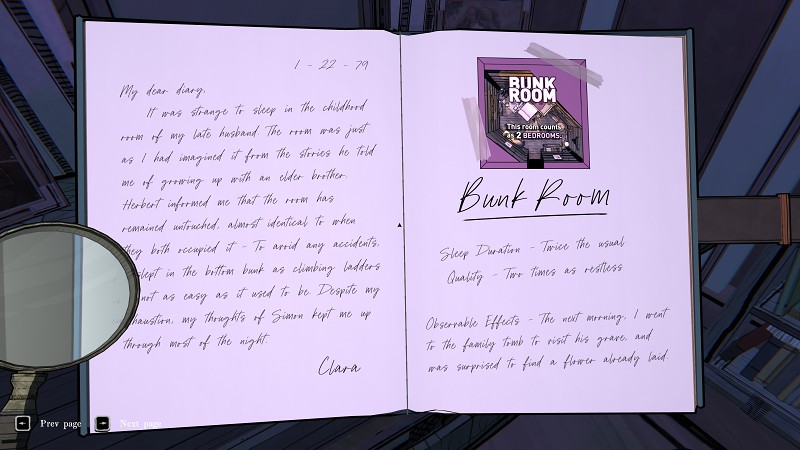 1 - 22 - 79
My dear diary,
It was strange to sleep in the childhood
room of my late husband. The room was just
as I had imagined it from the stories he told
me of growing up with an elder brother.
Herbert informed me that the room has
remained untouched, almost identical to when
they both occupied it - To avoid any accidents,
slept in the bottom bunk as climbing ladders
not as easy as it used to be. Despite my
exhaustion, my thoughts of Simon kept me up
through most of the night.
Clara
BUNK
ROOM
This room counts
as 2 BEDROOMS.
Bunk Room
Sleep Duration - Twice the usual
Quality - Two times as restless
Observable Effects - The next morning, I went
to the family tomb to visit his grave, and
was surprised to find a flower already laid.
Prev page
Next page